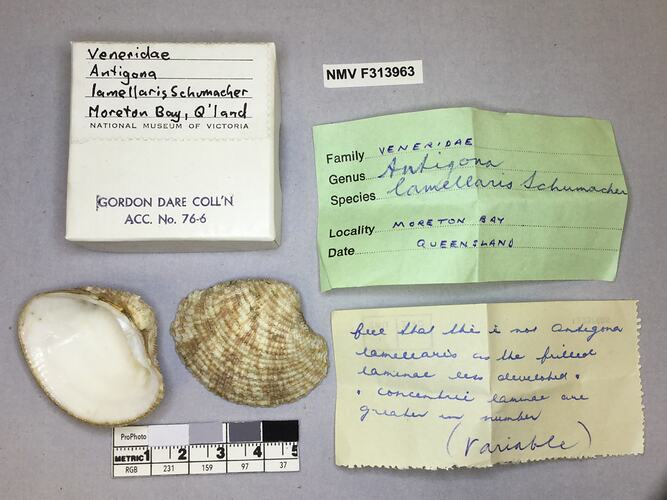 Veneridae
Antigona
lamellaris Schumacher
Moreton Bay, Q'land
NATIONAL MUSEUM OF VICTORIA
GORDON DARE COLL'N
ACC. No. 76-6
NMV F313963
Family VENERIDAE
Genus Antigona
Species lamellaris Schumacher
Locality MORETON BAY
Date QUEENSLAND
feel that this is not Antigona
lamellaris as the frilled
laminae less developed.
concentric laminae are
greater in number
(variable)
ProPhoto
METRIC 1 2 3 4 5
RGB 231 159 97 37